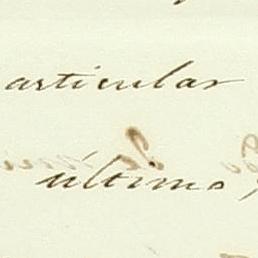 articular
último,